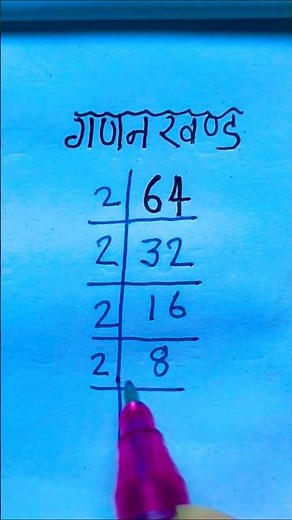 गणनखण्ड
2 64
2 32
2 16
2 8